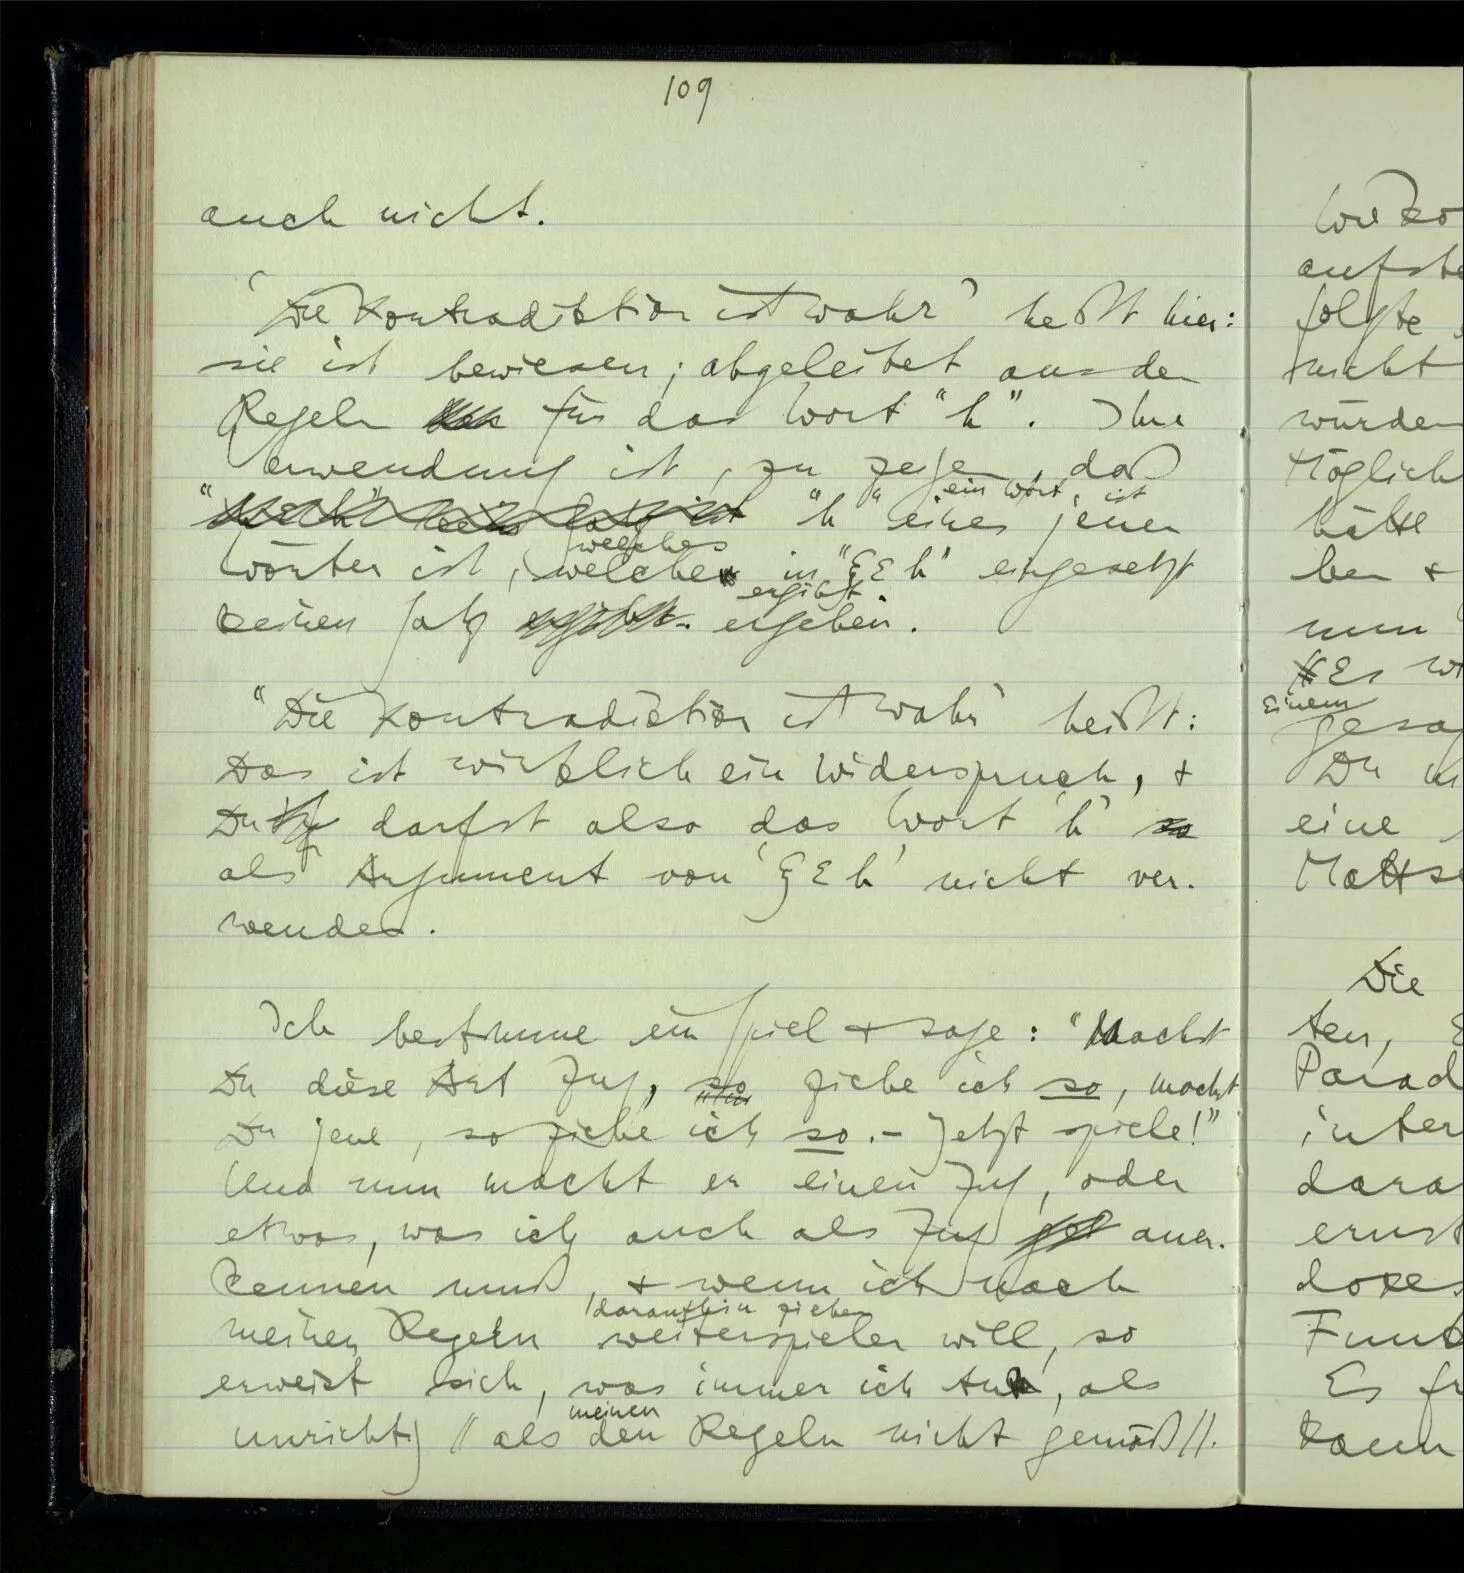 109
auch nicht.
'Die Kontradiktion ist wahr' heißt hier:
sie ist bewiesen; abgeleitet aus den
Regeln für das Wort "h". Ihre
Verwendung ist, zu zeigen, daß
"h" eines jener ein Wort, ist
Wörter ist, welche welches in "ξ ε h" eingesetzt
keinen Satz ergeben. ergibt.
"Die Kontradiktion ist wahr" heißt:
Das ist wirklich ein Widerspruch, +
Du darfst also das Wort 'h' so
als Argument von 'ξ ε h' nicht ver-
wenden.
Ich bestimme ein Spiel + sage: "Machst
Du diese Art Zug, so ziehe ich so, machst
Du jene, so ziehe ich so. – Jetzt spiele!"
Und nun macht er einen Zug, oder
etwas, was ich auch als Zug aner-
kennen muß, + wenn ich nach
daraufhin ziehen
meinen Regeln weiterspielen will, so
erweist sich, was immer ich tue, als
meinen
unrichtig // als den Regeln nicht gemäß //.
aufste
folgte
nicht
würden
Möglich
hätte
ben +
nun
Es
einem
Du
eine
Die
ten,
Parad
inter
dara
ernst
doxes
Funk
Es fr
kann